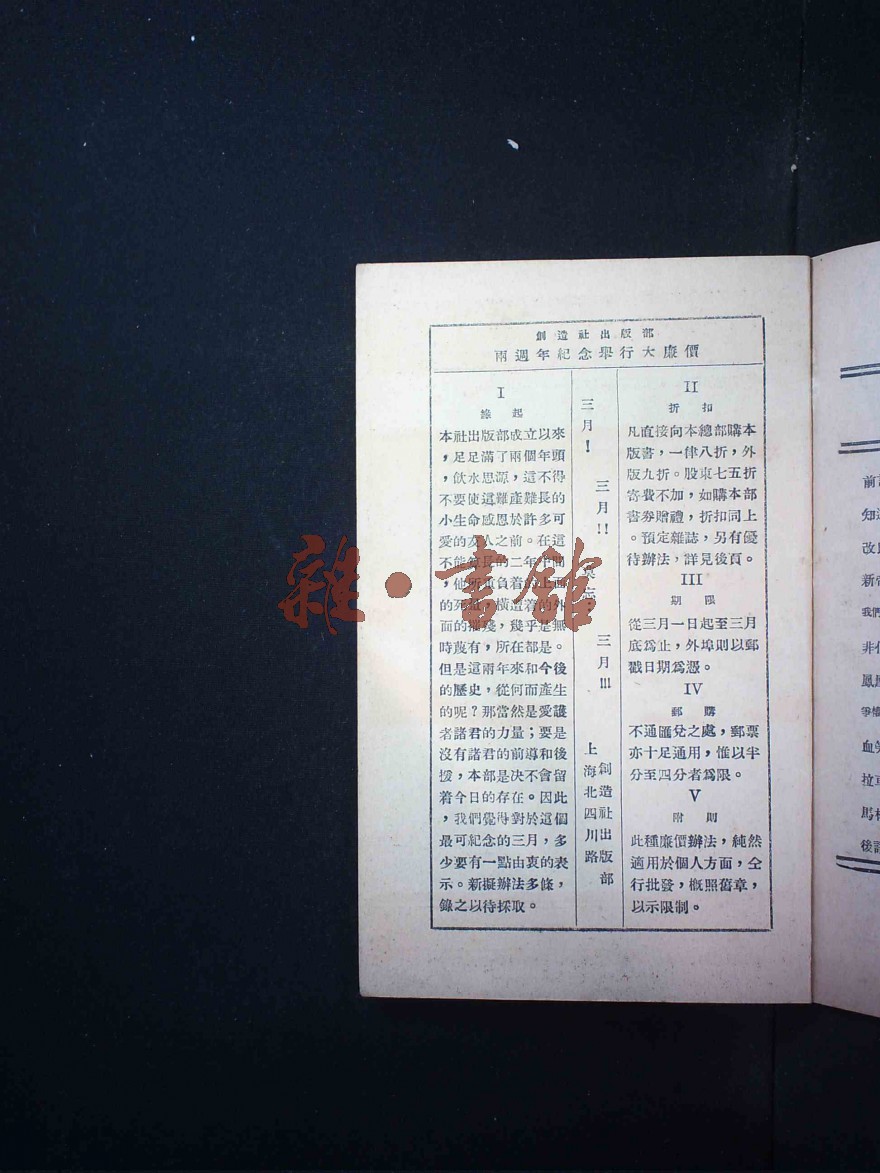 創造社出版部
兩週年紀念舉行大廉價
I
緣起
本社出版部成立以來
，足足滿了兩個年頭
，飲水思源，這不得
不要使這難產難長的
小生命感恩於許多可
愛的友人之前。在這
不能算長的二年中間
，他所重負着的上面
的死壓，橫遭着的外
面的摧殘，幾乎是無
時蔑有，所在都是。
但是這兩年來和今後
的歷史，從何而產生
的呢？那當然是愛護
者諸君的力量；要是
沒有諸君的前導和後
援，本部是決不會留
着今日的存在。因此
，我們覺得對於這個
最可紀念的三月，多
少要有一點由衷的表
示。新擬辦法多條，
錄之以待採取。
三月！
三月!!
莫忘：
三月!!!
創造社出版部
上海北四川路
II
折扣
凡直接向本總部購本
版書，一律八折，外
版九折。股東七五折
寄費不加，如購本部
書券贈禮，折扣同上
。預定雜誌，另有優
待辦法，詳見後頁。
III
期限
從三月一日起至三月
底爲止，外埠則以郵
戳日期爲憑。
IV
郵購
不通匯兌之處，郵票
亦十足通用，惟以半
分至四分者爲限。
V
附則
此種廉價辦法，純然
適用於個人方面，仝
行批發，概照舊章，
以示限制。
雜·書館
前
知
改
新
我們
非
鳳
爭
血
拉
馬
後